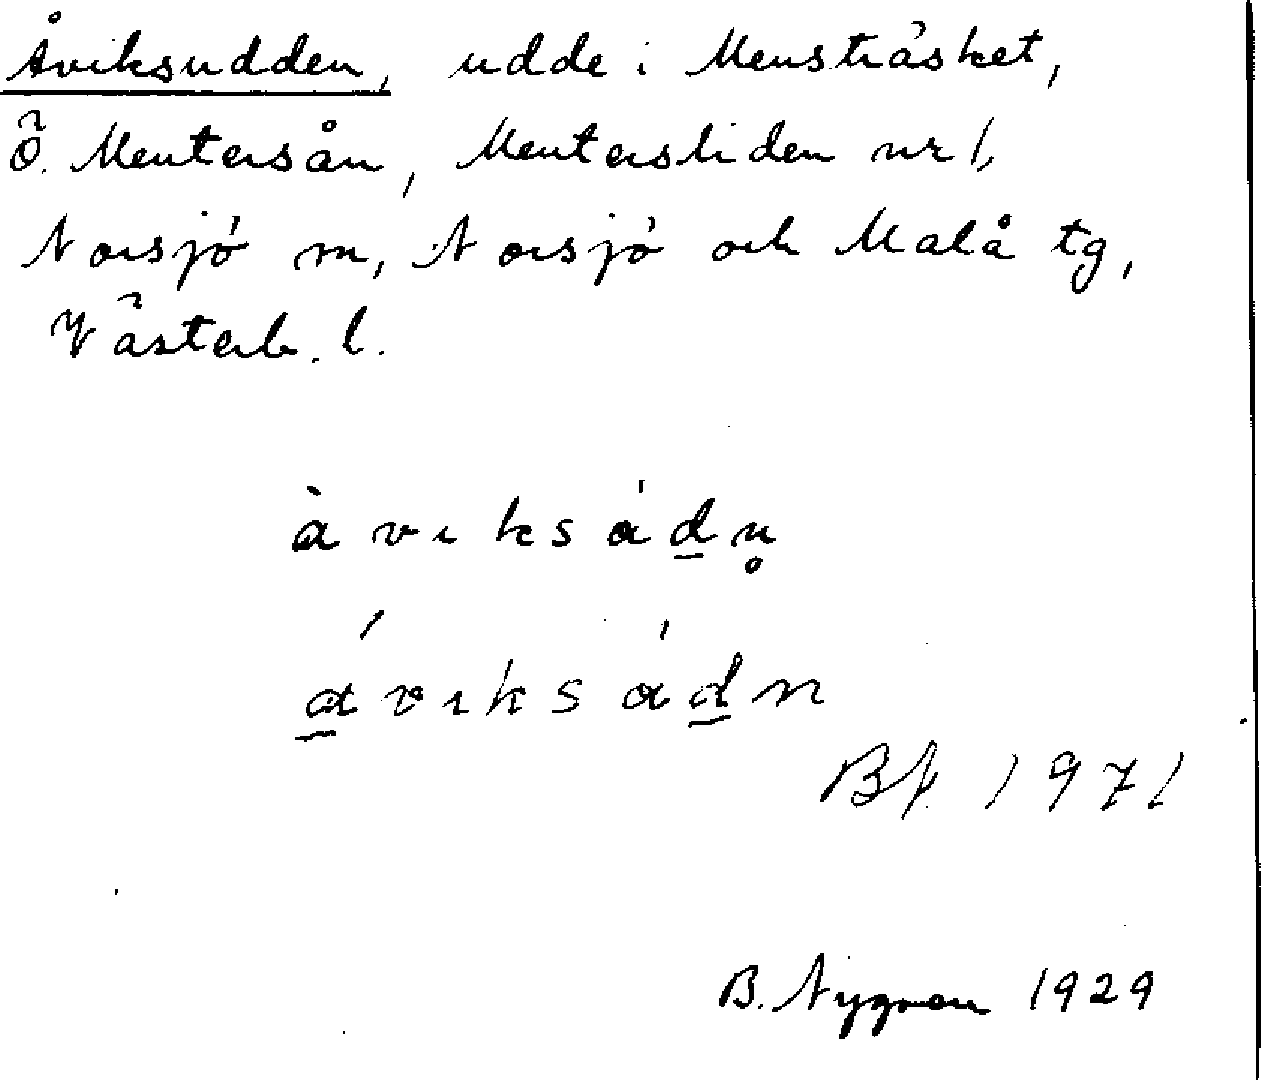 Åviksudden, udde i Mensträsket,
Ö. Mentersån, Mentersliden nr 1,
Norsjö m, Norsjö och Malå tg,
Västerb. l.
àvıksád̲n̥
á̲vıksád̲n
Bf. 1971
B. Nygren 1929